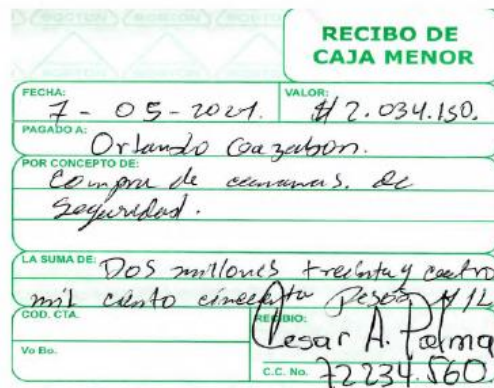 RECIBO DE
CAJA MENOR
FECHA: 7-05-2021.
VALOR: $ 2.034.150.
PAGADO A: Orlando Cazabon.
POR CONCEPTO DE:
Compra de camaras. de
Seguridad.
LA SUMA DE: Dos millones treinta y cuatro
mil ciento cincuenta Pesos M/L
COD. CTA.
RECIBIO: Cesar A. Palma
Vo Bo.
C.C. No. 72234.560